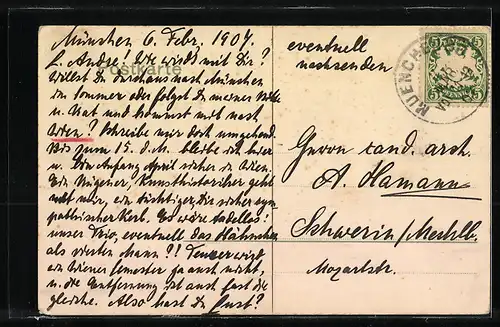 München 6. Febr. 1907.
Postkarte
L. Andre! Wie wird's mit Dir?
Willst Du durchaus nach München
im Sommer oder folgst Du meiner Bitte
u. Rat und kommst mit nach
Wien? Schreibe mir doch umgehend.
Bis zum 15. d. M. bleibe ich hier
u. bin Anfang April sicher in Wien.
Ein Kunsthistoriker geht
mit mir, ein tüchtiger, sicher sym-
pathischer Kerl. Es wäre tadellos!
unser Trio, eventuell das Hähnchen
als vierten Mann?! Teurer wird
ein Wiener Semester ja auch nicht,
u. die Entfernung ist auch fast die
gleiche. Also hast Du Lust?
eventuell
nachsenden
MUENCHEN
5 5
Herrn cand. arch.
A. Hamann
Schwerin/Mecklb.
Mozartstr.